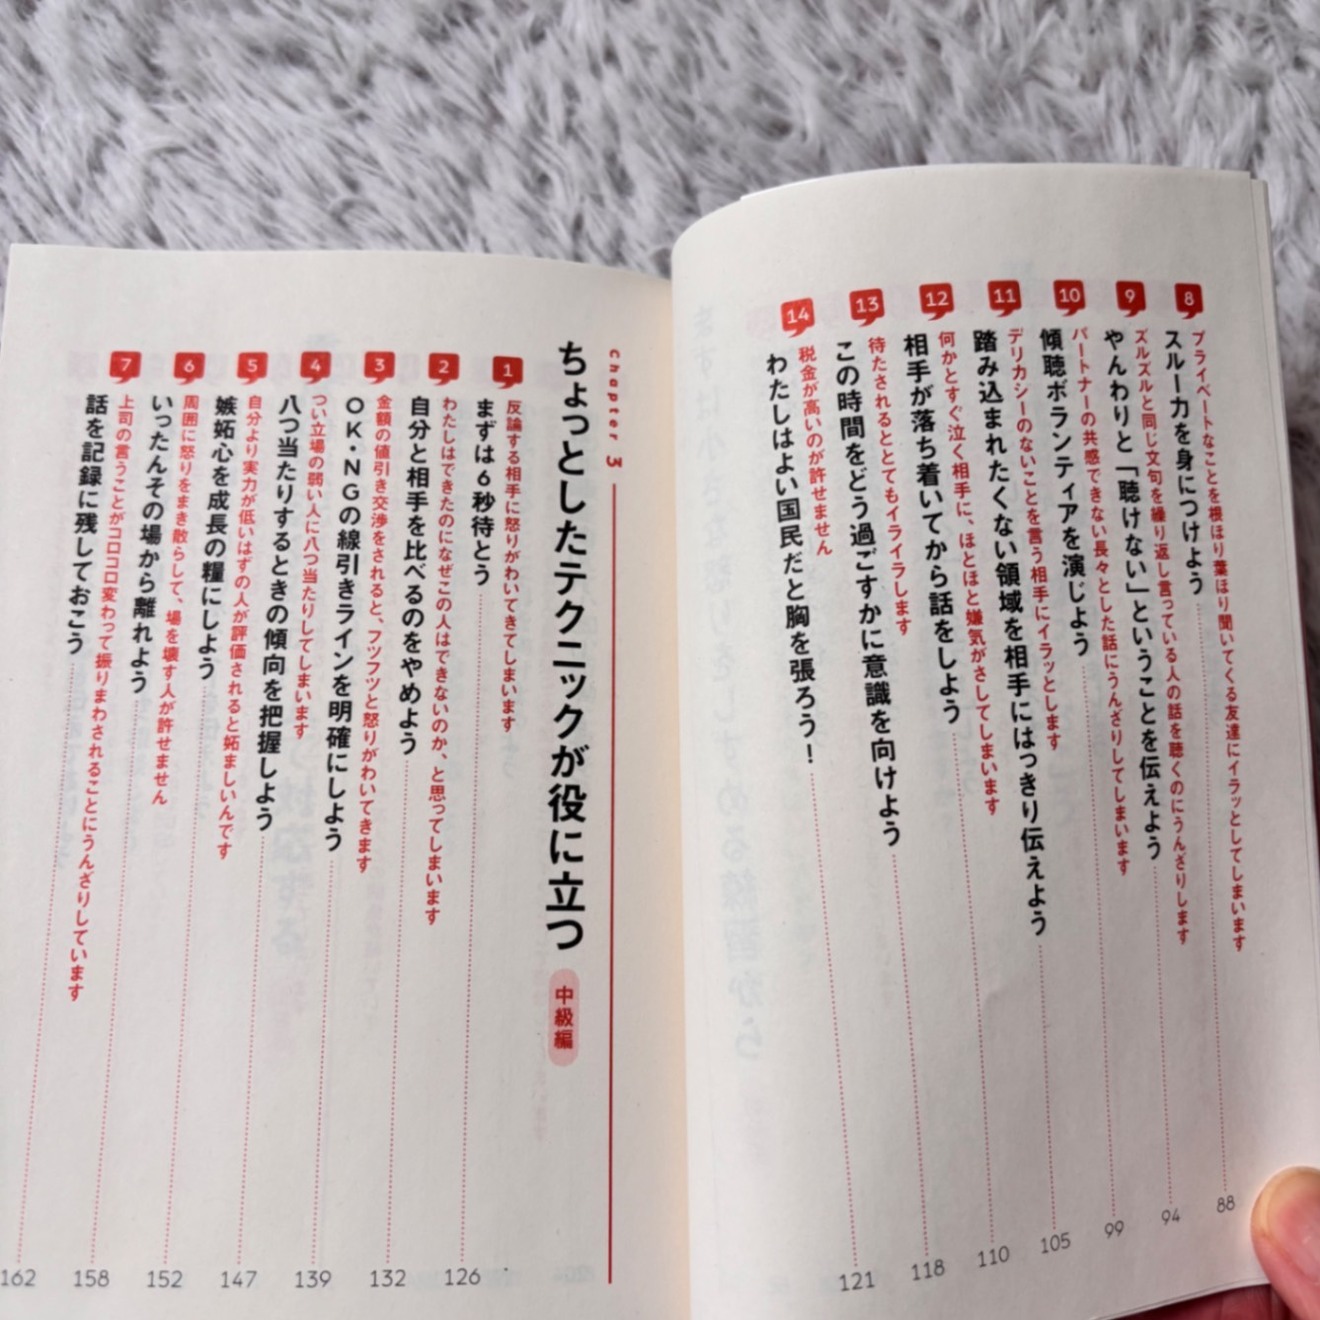 8
プライベートなことを根ほり葉ほり聞いてくる友達にイラッとしてしまいます
スルー力を身につけよう
88
9
ズルズルと同じ文句を繰り返し言っている人の話を聴くのにうんざりします
やんわりと「聴けない」ということを伝えよう
94
10
パートナーの共感できない長々とした話にうんざりしてしまいます
傾聴ボランティアを演じよう
99
11
デリカシーのないことを言う相手にイラッとします
踏み込まれたくない領域を相手にはっきり伝えよう
105
12
何かとすぐ泣く相手に、ほとほと嫌気がさしてしまいます
相手が落ち着いてから話をしよう
110
13
待たされるととてもイライラします
この時間をどう過ごすかに意識を向けよう
118
14
税金が高いのが許せません
わたしはよい国民だと胸を張ろう!
121
Chapter 3
ちょっとしたテクニックが役に立つ
中級編
1
反論する相手に怒りがわいてきてしまいます
まずは6秒待とう
126
2
わたしはできたのになぜこの人はできないのか、と思ってしまいます
自分と相手を比べるのをやめよう
132
3
金額の値引き交渉をされると、フツフツと怒りがわいてきます
OK・NGの線引きラインを明確にしよう
139
4
つい立場の弱い人に八つ当たりしてしまいます
八つ当たりするときの傾向を把握しよう
147
5
自分より実力が低いはずの人が評価されると妬ましいんです
嫉妬心を成長の糧にしよう
152
6
周囲に怒りをまき散らして、場を壊す人が許せません
いったんその場から離れよう
158
7
上司の言うことがコロコロ変わって振りまわされることにうんざりしています
話を記録に残しておこう
162